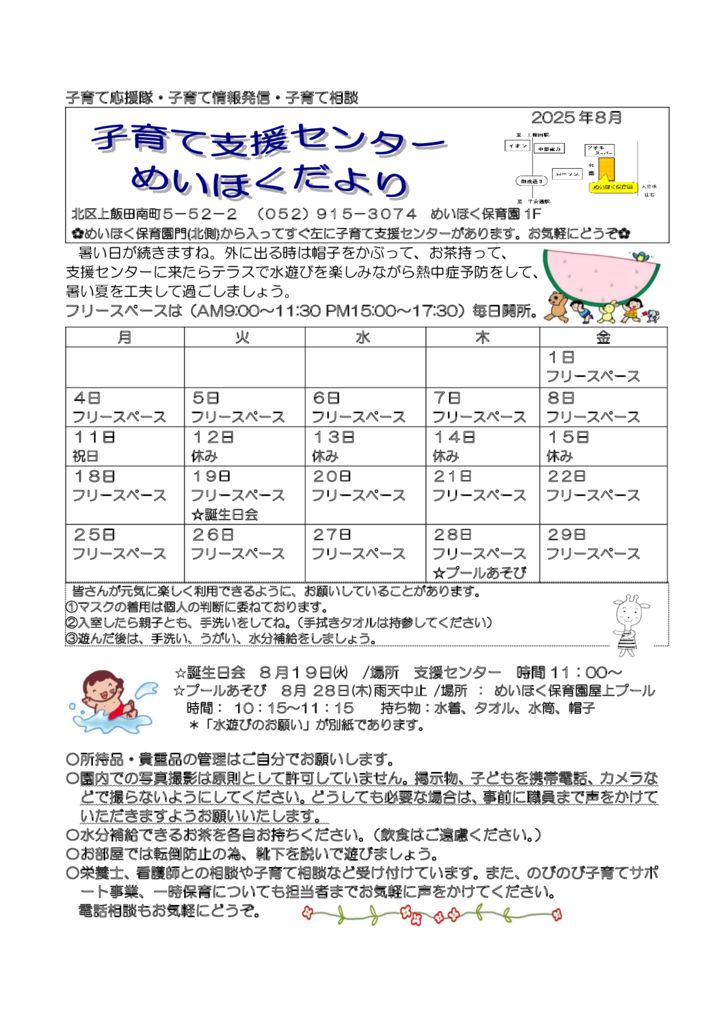 子育て応援隊・子育て情報発信・子育て相談
2025年8月
子育て支援センター
めいほくだより
イオン
中部電力
ローソン
めいほく保育園
北区上飯田南町5－52－2　（052）915－3074　めいほく保育園1F
✿めいほく保育園門(北側)から入ってすぐ左に子育て支援センターがあります。お気軽にどうぞ✿
暑い日が続きますね。外に出る時は帽子をかぶって、お茶持って、
支援センターに来たらテラスで水遊びを楽しみながら熱中症予防をして、
暑い夏を工夫して過ごしましょう。
フリースペースは（AM9:00～11:30 PM15:00～17:30）毎日開所。
月　火　水　木　金
1日
フリースペース
4日　5日　6日　7日　8日
フリースペース　フリースペース　フリースペース　フリースペース　フリースペース
11日　12日　13日　14日　15日
祝日　休み　休み　休み　休み
18日　19日　20日　21日　22日
フリースペース　フリースペース　フリースペース　フリースペース　フリースペース
☆誕生日会
25日　26日　27日　28日　29日
フリースペース　フリースペース　フリースペース　フリースペース　フリースペース
☆プールあそび
皆さんが元気に楽しく利用できるように、お願いしていることがあります。
①マスクの着用は個人の判断に委ねております。
②入室したら親子とも、手洗いをしてね。（手拭きタオルは持参してください）
③遊んだ後は、手洗い、うがい、水分補給をしましょう。
☆誕生日会　8月19日㈫　/場所　支援センター　時間11：00～
☆プールあそび　8月28日(木)雨天中止 /場所 ： めいほく保育園屋上プール
時間： 10：15～11：15　　持ち物：水着、タオル、水筒、帽子
＊「水遊びのお願い」が別紙であります。
〇所持品・貴重品の管理はご自分でお願いします。
〇園内での写真撮影は原則として許可していません。掲示物、子どもを携帯電話、カメラな
どで撮らないようにしてください。どうしても必要な場合は、事前に職員まで声をかけて
いただきますようお願いいたします。
〇水分補給できるお茶を各自お持ちください。（飲食はご遠慮ください。）
〇お部屋では転倒防止の為、靴下を脱いで遊びましょう。
〇栄養士、看護師との相談や子育て相談など受け付けています。また、のびのび子育てサポ
ート事業、一時保育についても担当者までお気軽に声をかけてください。
電話相談もお気軽にどうぞ。